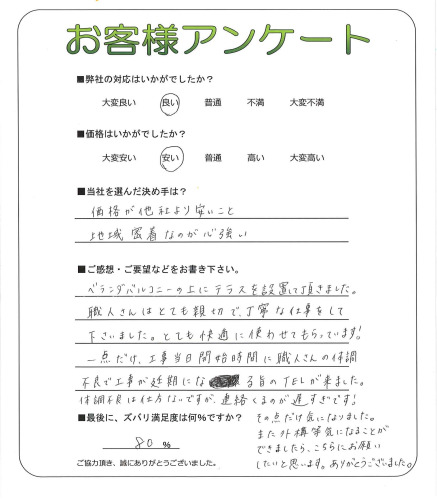 お客様アンケート
■弊社の対応はいかがでしたか？
大変良い 良い 普通 不満 大変不満
■価格はいかがでしたか？
大変安い 安い 普通 高い 大変高い
■当社を選んだ決め手は？
価格が他社より安いこと
地域密着なのが心強い
■ご感想・ご要望などをお書き下さい。
ベランダバルコニーの上にテラスを設置して頂きました。
職人さんはとても親切で、丁寧な仕事をして
下さいました。とても快適に使わせてもらっています!
一点だけ、工事当日開始時間に職人さんの体調
不良で工事が延期にな る旨のTELが来ました。
体調不良は仕方ないですが、連絡くるのが遅すぎです!
■最後に、ズバリ満足度は何%ですか？
80 %
その点だけ気になりました。
また外構等気になることが
できましたら、こちらにお願い
したいと思います。ありがとうございました。
ご協力頂き、誠にありがとうございました。